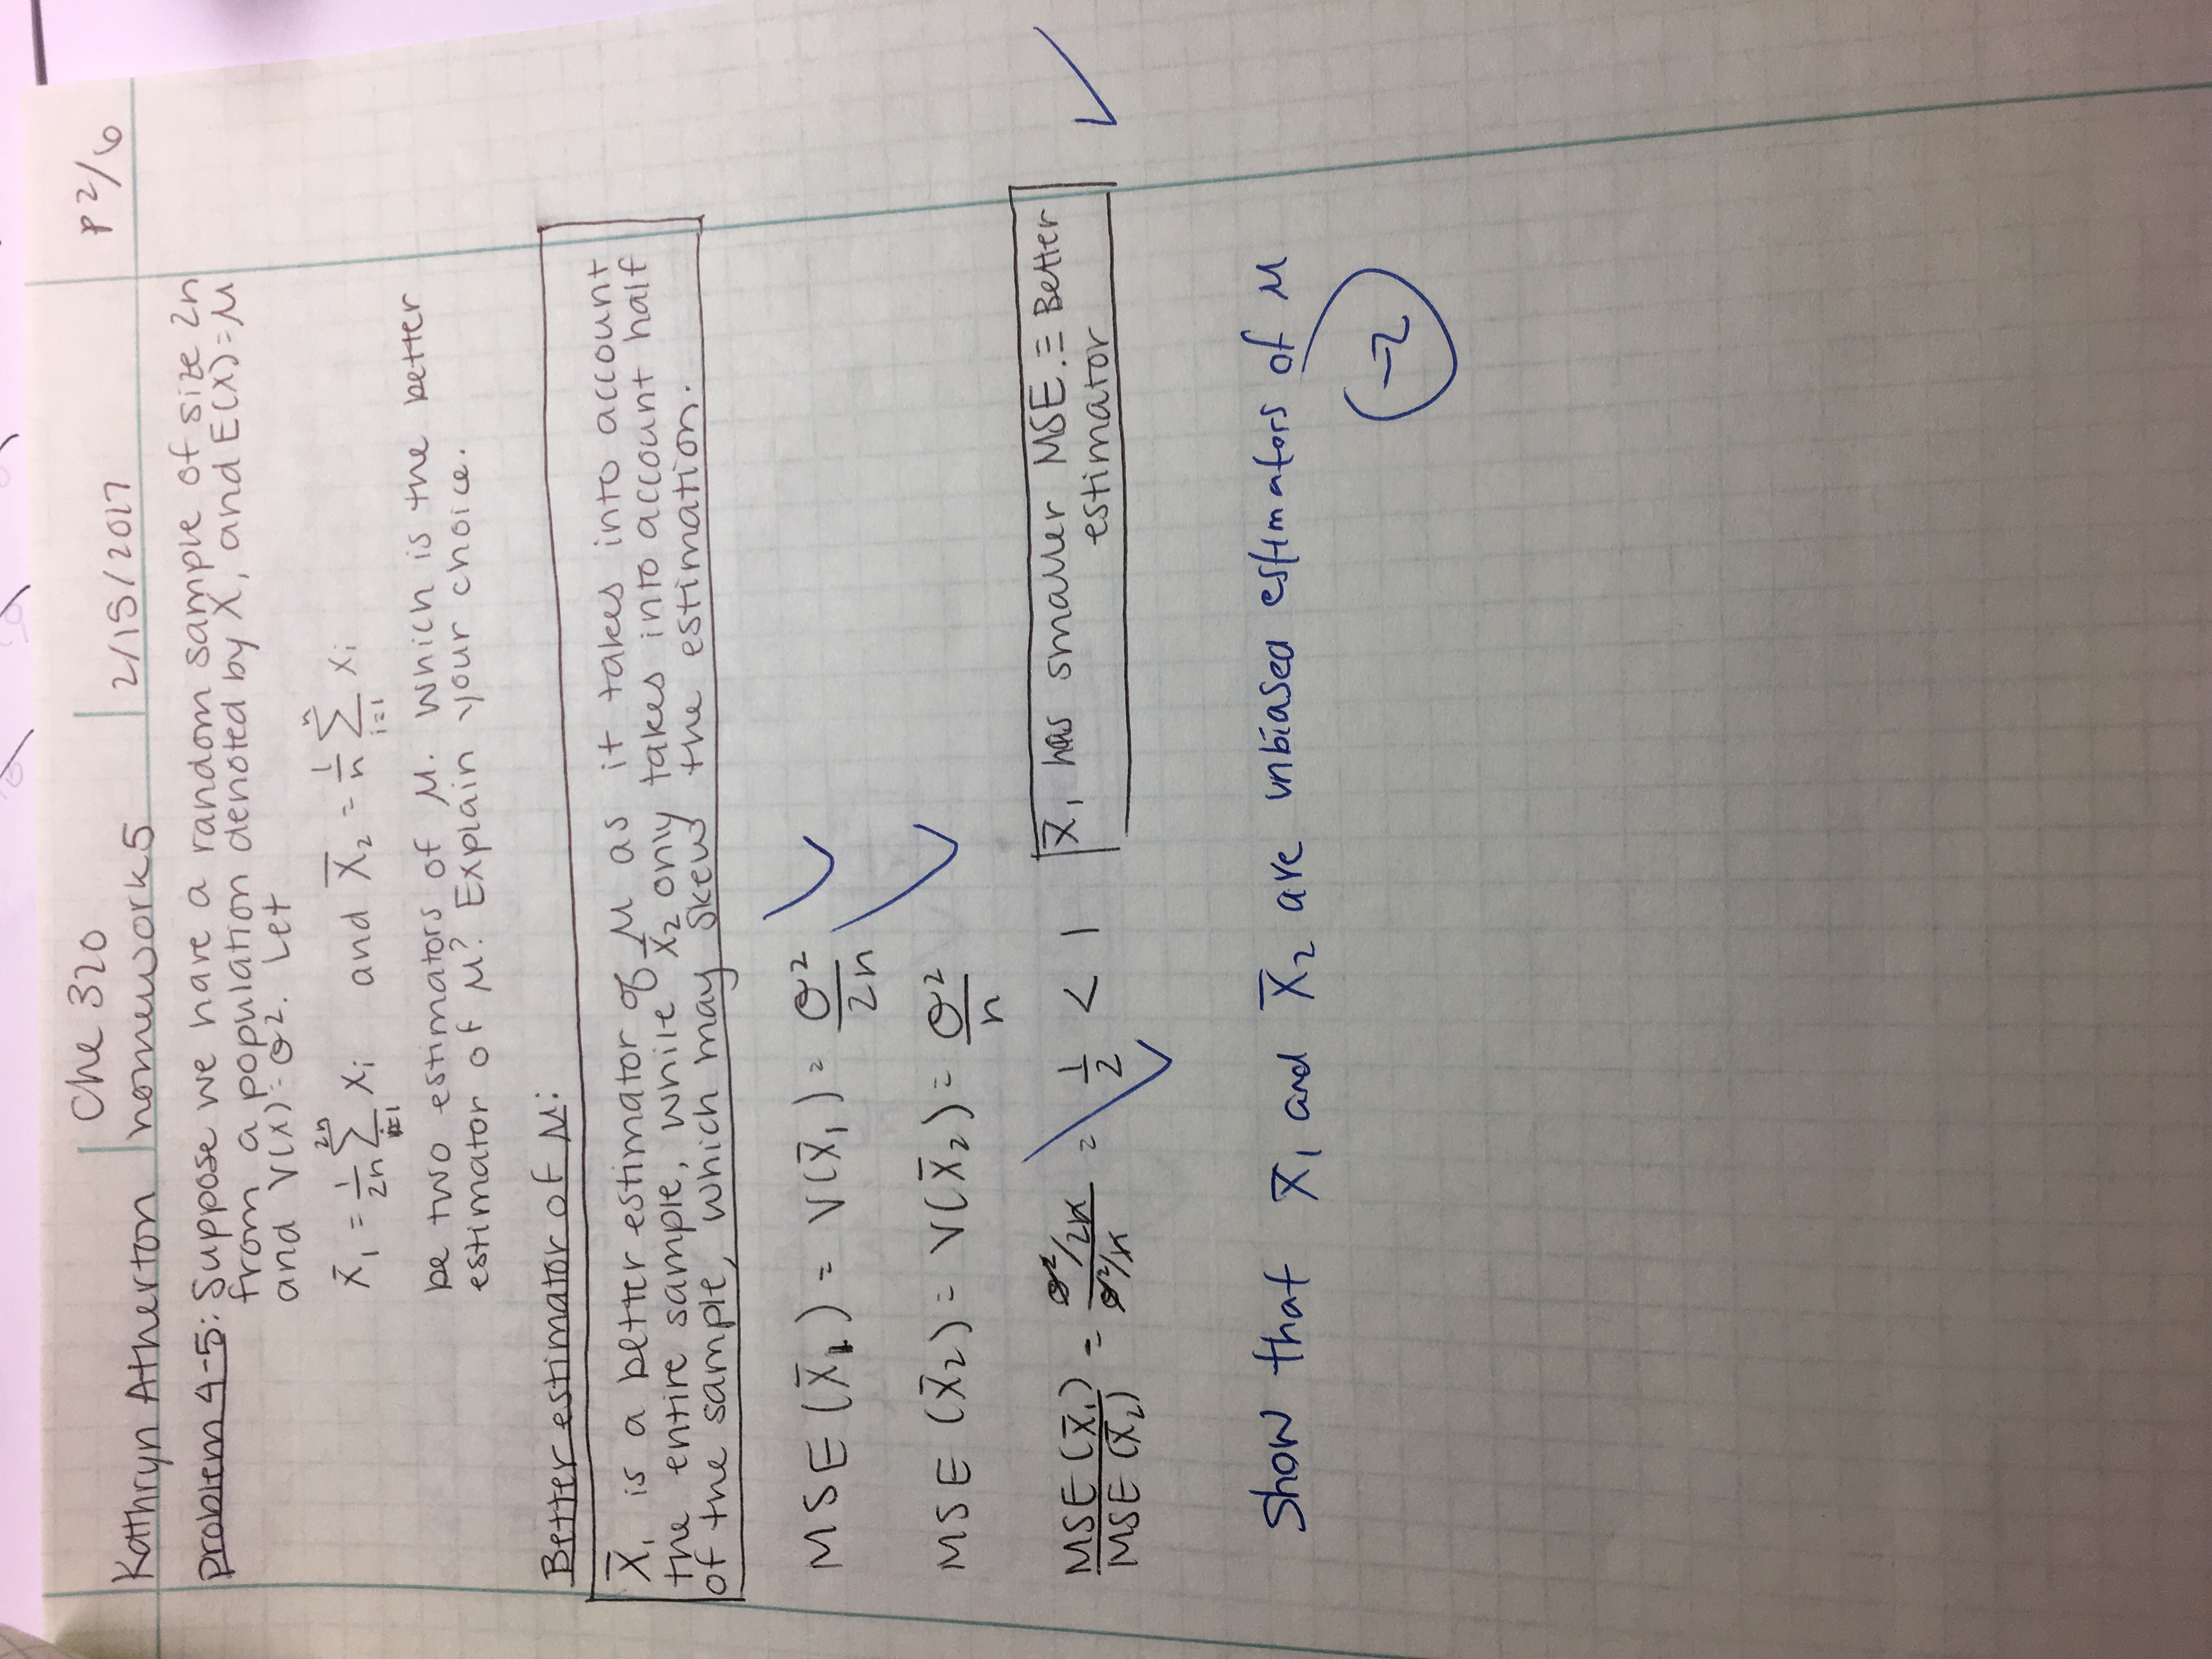 Che 320
Kathryn Atherton homework 5 2/15/2017 P 2/6
Problem 4-5: Suppose we have a random sample of size 2n
from a population denoted by X, and E(X)=μ
and V(X)=σ². Let
X̄₁ = 1/2n 2n∑i=1 Xi and X̄₂ = 1/n n∑i=1 Xi
be two estimators of μ. Which is the better
estimator of μ? Explain your choice.
Better estimator of μ:
X̄₁ is a better estimator of μ as it takes into account
the entire sample, while X̄₂ only takes into account half
of the sample, which may skew the estimation.
MSE (X̄₁) = V(X̄₁) = σ²/2n
MSE (X̄₂) = V(X̄₂) = σ²/n
MSE (X̄₁)/MSE (X̄₂) = σ²/2n / σ²/n = 1/2 < 1 X̄₁ has smaller MSE. ≡ Better
estimator
Show that X̄₁ and X̄₂ are unbiased estimators of μ
-2